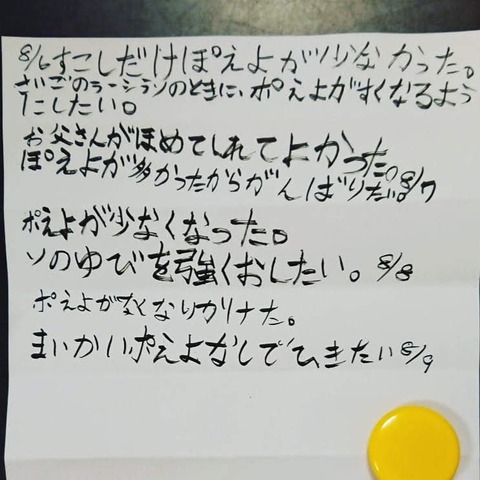 8/6すこしだけぽえよが少なかった。
さいごのラーシラソのときに、ポえよがすくなるよう
にしたい。
お父さんがほめてくれてよかった。
ぽえよが多かったからがんばりたい。8/7
ポえよが少なくなった。
ソのゆびを強くおしたい。8/8
ポえよがなくなりかけた。
まいかいポえよなしでひきたい8/9